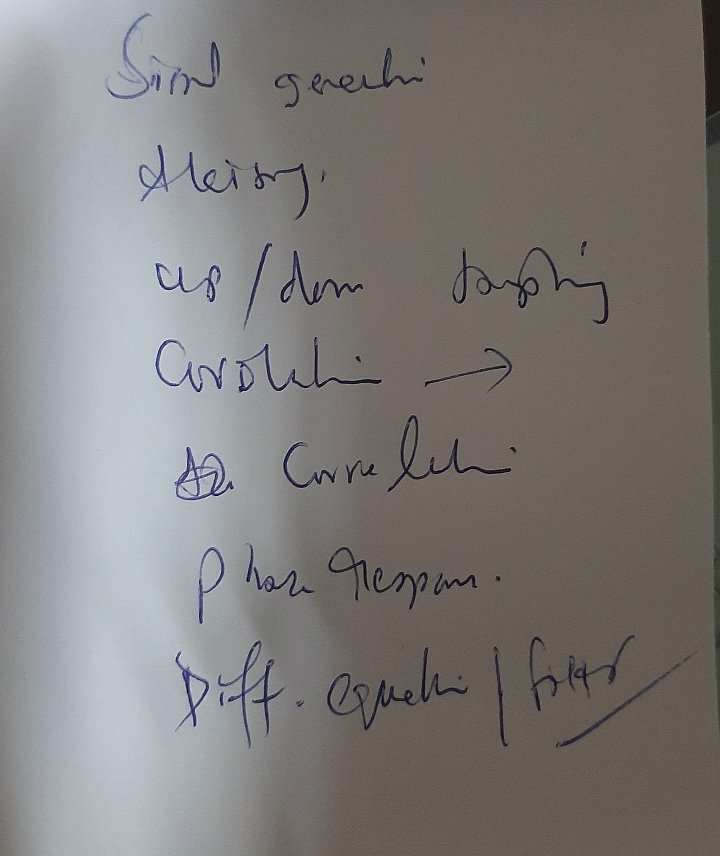 Signal generation
Aliasing.
up/down sampling
Convolution →
Correlation
Phase Response.
Diff. equation / filter